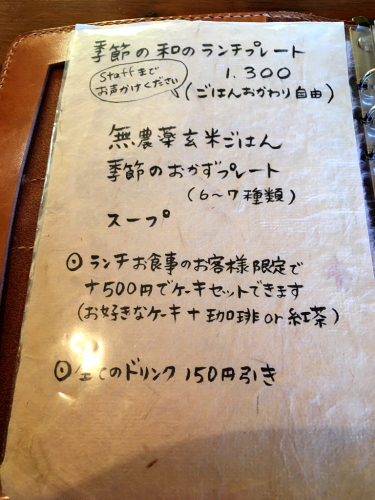 季節の和のランチプレート
1,300
Staffまで
お声かけください
(ごはんおかわり自由)
無農薬玄米ごはん
季節のおかずプレート
(6〜7種類)
スープ
◎ランチお食事のお客様限定で
+500円でケーキセットできます
(お好きなケーキ+珈琲or紅茶)
◎全てのドリンク150円引き